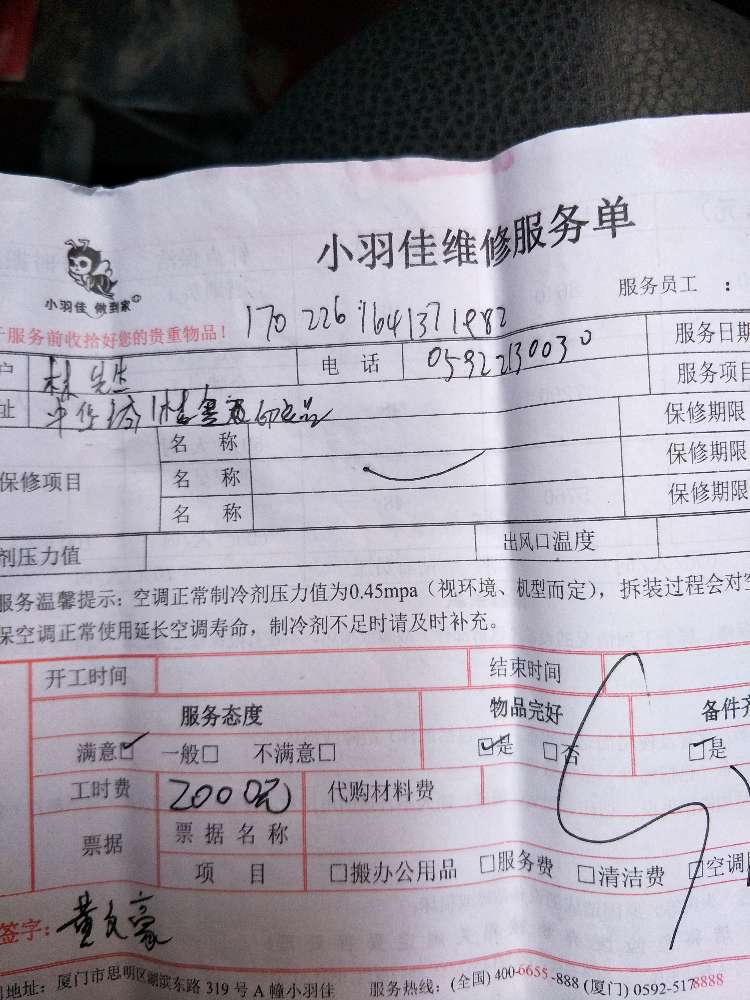 小羽佳维修服务单
小羽佳 做到家
服务员工 :
服务前收拾好您的贵重物品!
170 226 1641371982
户 林先生 电 话 05922130030 服务日期
址 服务项目
名 称 保修期限
保修项目 名 称 保修期限
名 称 保修期限
剂压力值 出风口温度
服务温馨提示: 空调正常制冷剂压力值为0.45mpa(视环境、机型而定), 拆装过程会对空
保空调正常使用延长空调寿命, 制冷剂不足时请及时补充。
开工时间 结束时间
服务态度 物品完好 备件齐
满意☑ 一般□ 不满意□ ☑是 □否 ☑是
工时费 2000元 代购材料费
票据 票据名称
项 目 □搬办公用品 □服务费 □清洁费 □空调
签字: 黄文豪
地址: 厦门市思明区湖滨东路 319 号 A 幢小羽佳 服务热线: (全国) 400-6655-888 (厦门) 0592-5178888